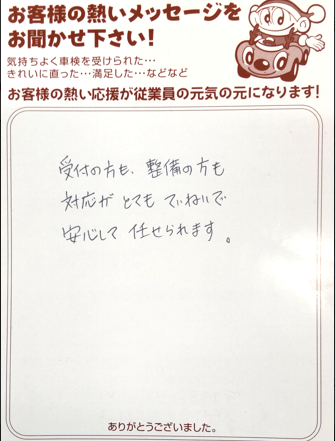 お客様の熱いメッセージを
お聞かせ下さい!
気持ちよく車検を受けられた…
きれいに直った…満足した…などなど
お客様の熱い応援が従業員の元気の元になります!
受付の方も、整備の方も
対応が とても ていねいで
安心して 任せられます。
ありがとうございました。